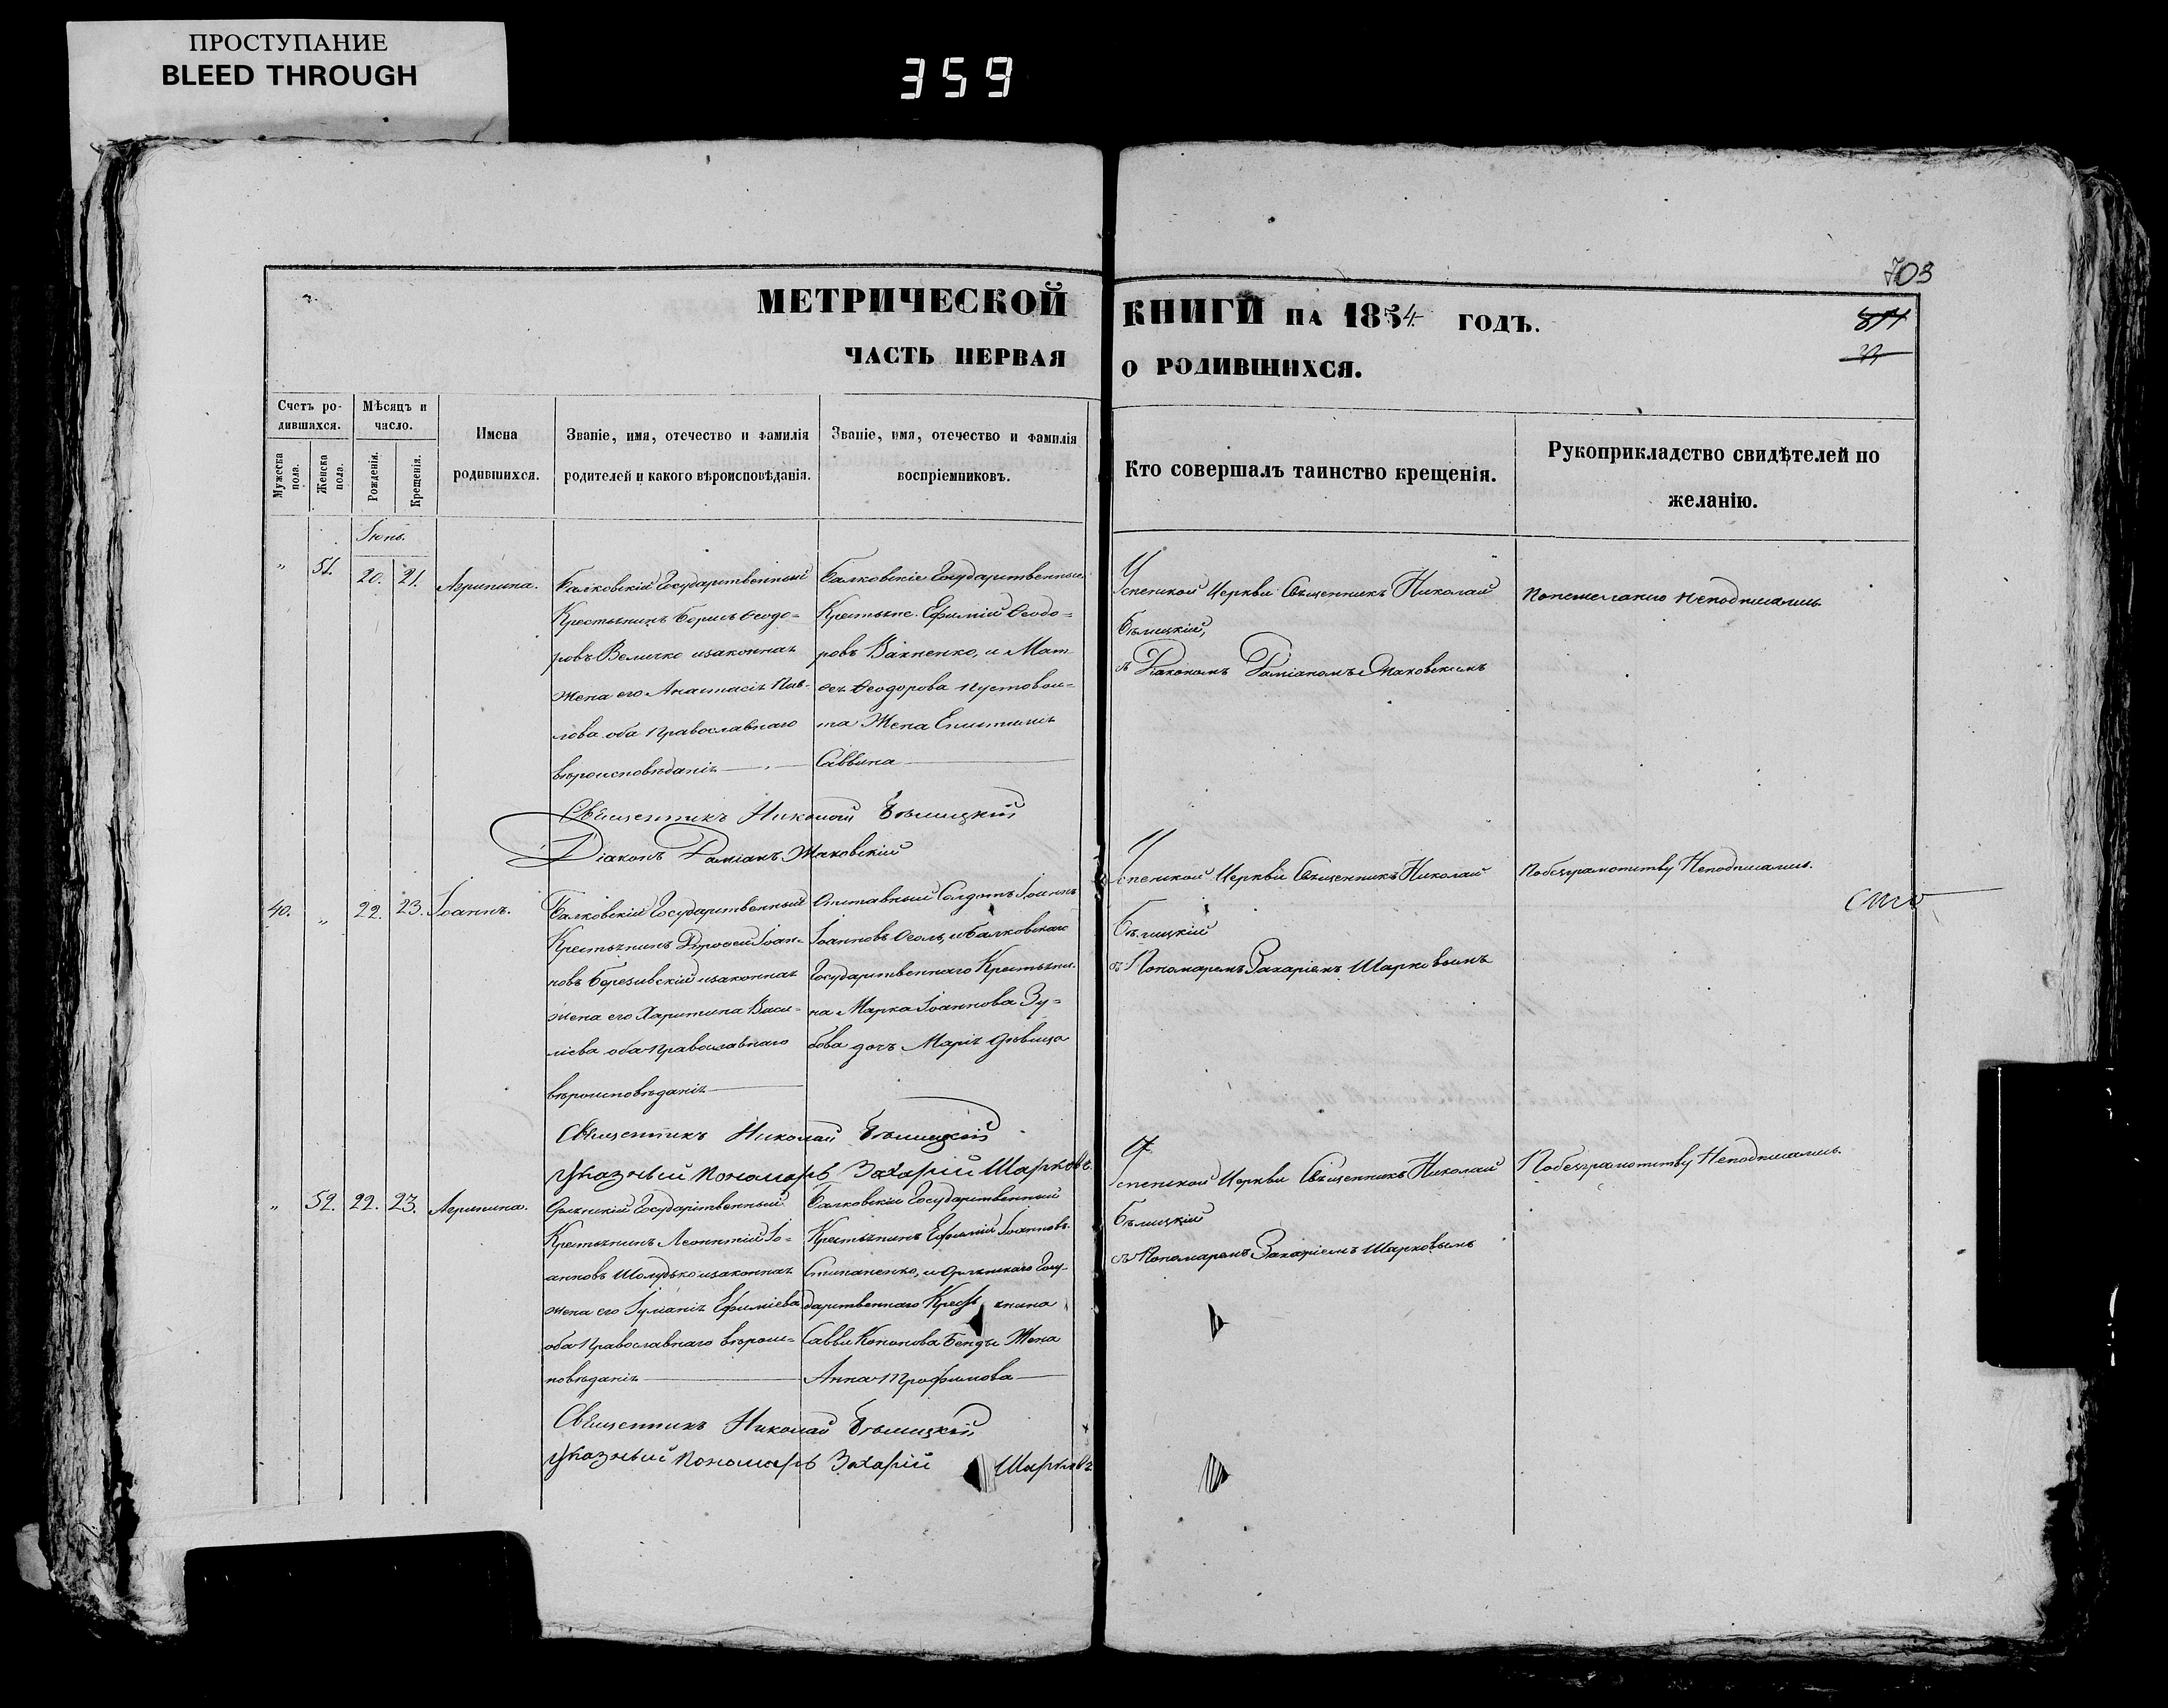 ПРОСТУПАНИЕ
BLEED THROUGH
359
703
МЕТРИЧЕСКОЙ КНИГИ НА 1854 ГОДЪ.
ЧАСТЬ ПЕРВАЯ О РОДИВШИХСЯ.
Счетъ ро-
дившихся.
Мужеска пола.
Женска пола.
Мѣсяцъ и
число.
Рожденія.
Крещенія.
Имена
родившихся.
Званіе, имя, отечество и фамилія
родителей и какого вѣроисповѣданія.
Званіе, имя, отечество и фамилія
воспріемниковъ.
Кто совершалъ таинство крещенія.
Рукоприкладство свидѣтелей по
желанію.
Іюнь.
" 51. 20. 21. Агрипина.
Балковскій Государственный
Крестьянинъ Борисъ Ѳеодо=
ровъ Величко изаконная
жена его Анастасія Пав-
лова оба Православнаго
вѣроисповѣданія
Балковскіе Государственные
Крестьяне. Ефимій Ѳеодо=
ровъ Вахненко, и Мат
ѳея Ѳеодорова Пустовои=
та Жена Епистимія
Саввина
Успенской Церкви Священникъ Николай
Бѣлицкій,
съ Діакономъ Даміаномъ Маковскимъ
Понежеланію Неподписались.
Священникъ Николай Бѣлицкій
Діаконъ Даміанъ Маковскій
40. " 22. 23. Іоаннъ.
Балковскій Государственный
Крестьянинъ Дороѳей Іоан=
новъ Березивскій изаконная
жена его Харитина Васи=
ліева оба Православнаго
вѣроисповѣданія
Отставный Солдатъ Іоаннъ
Іоанновъ, иБалковскаго
Государственнаго Крестьяни=
на Марка Іоаннова Зу=
бова дочь Марія дѣвица
Успенской Церкви Священникъ Николай
Бѣлицкій
съ Пономаремъ Захаріемъ Шарковымъ
Побезграмотству Неподписались.
Священникъ Николай Бѣлицкій
Указный Пономарь Захарій Шарковъ.
" 52. 22. 23. Агрипина.
Государственный
Крестьянинъ Леонтій Іо=
анновъ Шолудько изаконная
жена его Іуліанія Ефиміева
оба Православнаго вѣроис=
повѣданія
Балковскій Государственный
Крестьянинъ Ефимій Іоанновъ
Стипаненко, и Госу-
дарственнаго Крестьянина
Саввы Кононова Бенды Жена
Анна Трофимова
Успенской Церкви Священникъ Николай
Бѣлицкій
съ Пономаремъ Захаріемъ Шарковымъ
Побезграмотству Неподписались.
Священникъ Николай Бѣлицкій
Указный Пономарь Захарій Шарковъ